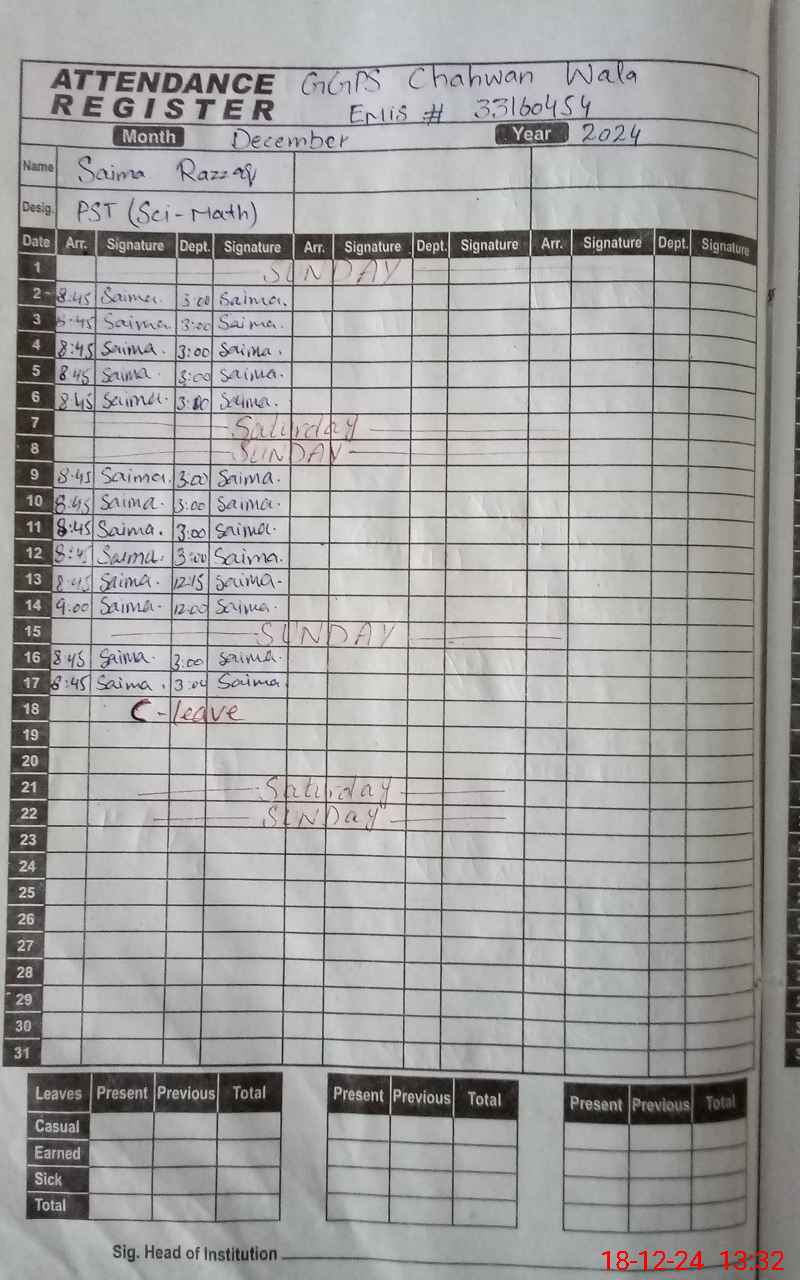 ATTENDANCE REGISTER
GGPS Chahwan Wala
Emis # 33160454
Month December Year 2024
Name Saima Razzaq
Desig. PST (Sci-Math)
Date Arr. Signature Dept. Signature Arr. Signature Dept. Signature Arr. Signature Dept. Signature
1 SUNDAY
2 8:45 Saima. 3:00 Saima.
3 8:45 Saima 3:00 Saima.
4 8:45 Saima. 3:00 Saima.
5 8:45 Saima. 3:00 Saima.
6 8:45 Saima. 3:00 Saima.
7 Saturday
8 SUNDAY
9 8:45 Saima. 3:00 Saima.
10 8:45 Saima. 3:00 Saima.
11 8:45 Saima. 3:00 Saima.
12 8:45 Saima. 3:00 Saima.
13 8:45 Saima. 12:15 Saima.
14 9:00 Saima. 12:00 Saima.
15 SUNDAY
16 8:45 Saima. 3:00 Saima.
17 8:45 Saima. 3:00 Saima
18 C-leave
19
20
21 Saturday
22 SUNDAY
23
24
25
26
27
28
29
30
31
Leaves Present Previous Total Present Previous Total Present Previous Total
Casual
Earned
Sick
Total
Sig. Head of Institution
18-12-24 13:32